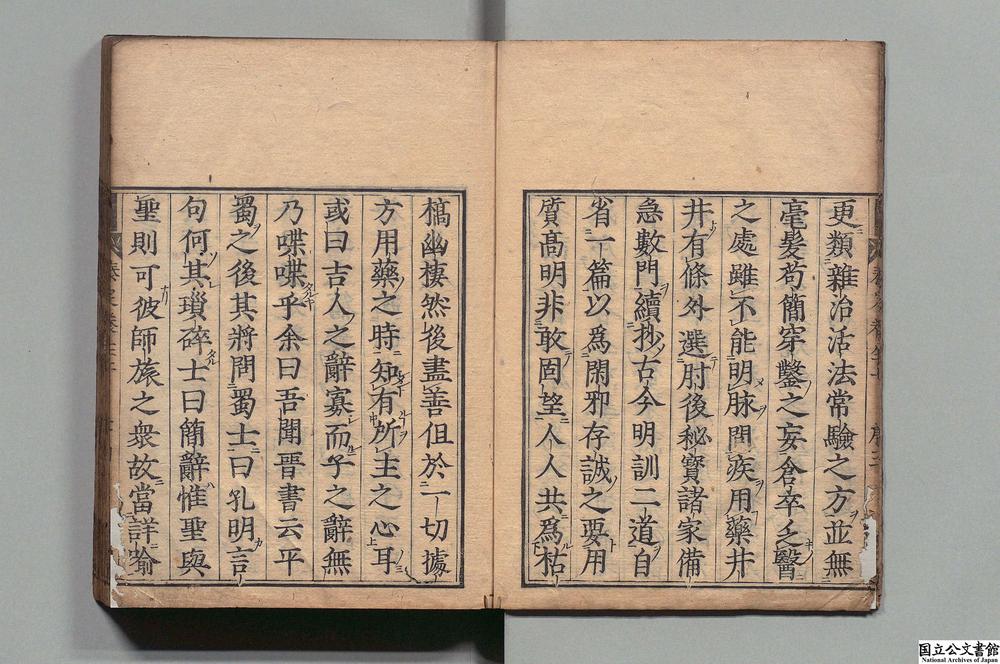 更類雜治活法常驗之方並無
毫髮苟簡穿鑿之妄倉卒乏醫
之處雖不能明脉問疾用藥井
井有條外選肘後秘寶諸家備
急數門續抄古今明訓二道自
省一篇以爲閑邪存誠之要用
質髙明非敢固望人人共爲枯
槁幽棲然後盡善但於一切據
方用藥之時知有所主之心耳
或曰吉人之辭寡而子之辭無
乃喋喋乎余曰吾聞晋書云平
蜀之後其將問蜀士曰孔明言
句何其瑣碎士曰簡辭惟聖與
聖則可彼師旅之衆故當詳喻
国立公文書館
National Archives of Japan